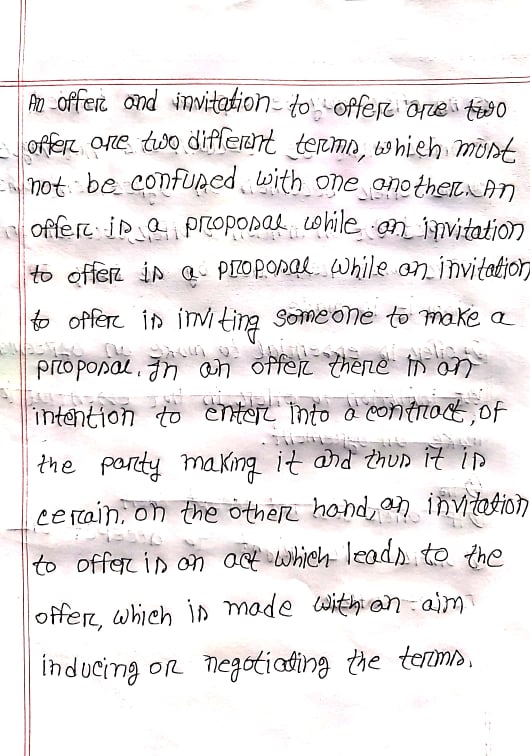 An offer and invitation to offer are two
offer are two different terms, which must
not be confused with one another. An
offer is a proposal while an invitation
to offer is a proposal while an invitation
to offer is inviting someone to make a
proposal. In an offer there is an
intention to enter into a contract, of
the party making it and thus it is
cerain. on the other hand, an invitation
to offer is an act which leads to the
offer, which is made with an aim
inducing or negotiating the terms.